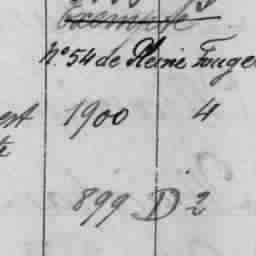 N.° 54 de Pleine Fouge
est 1900 4
te
899 D 2